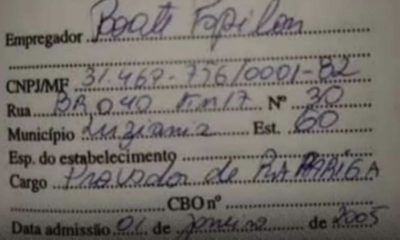 Empregador Boate Papilon
CNPJ/MF 31.469-776/0001-82
Rua BR 040 Km 17 Nº 30
Município Luziania Est. GO
Esp. do estabelecimento
Cargo Provador de RAPARIGA
CBO nº
Data admissão 01 de Janeiro de 2005